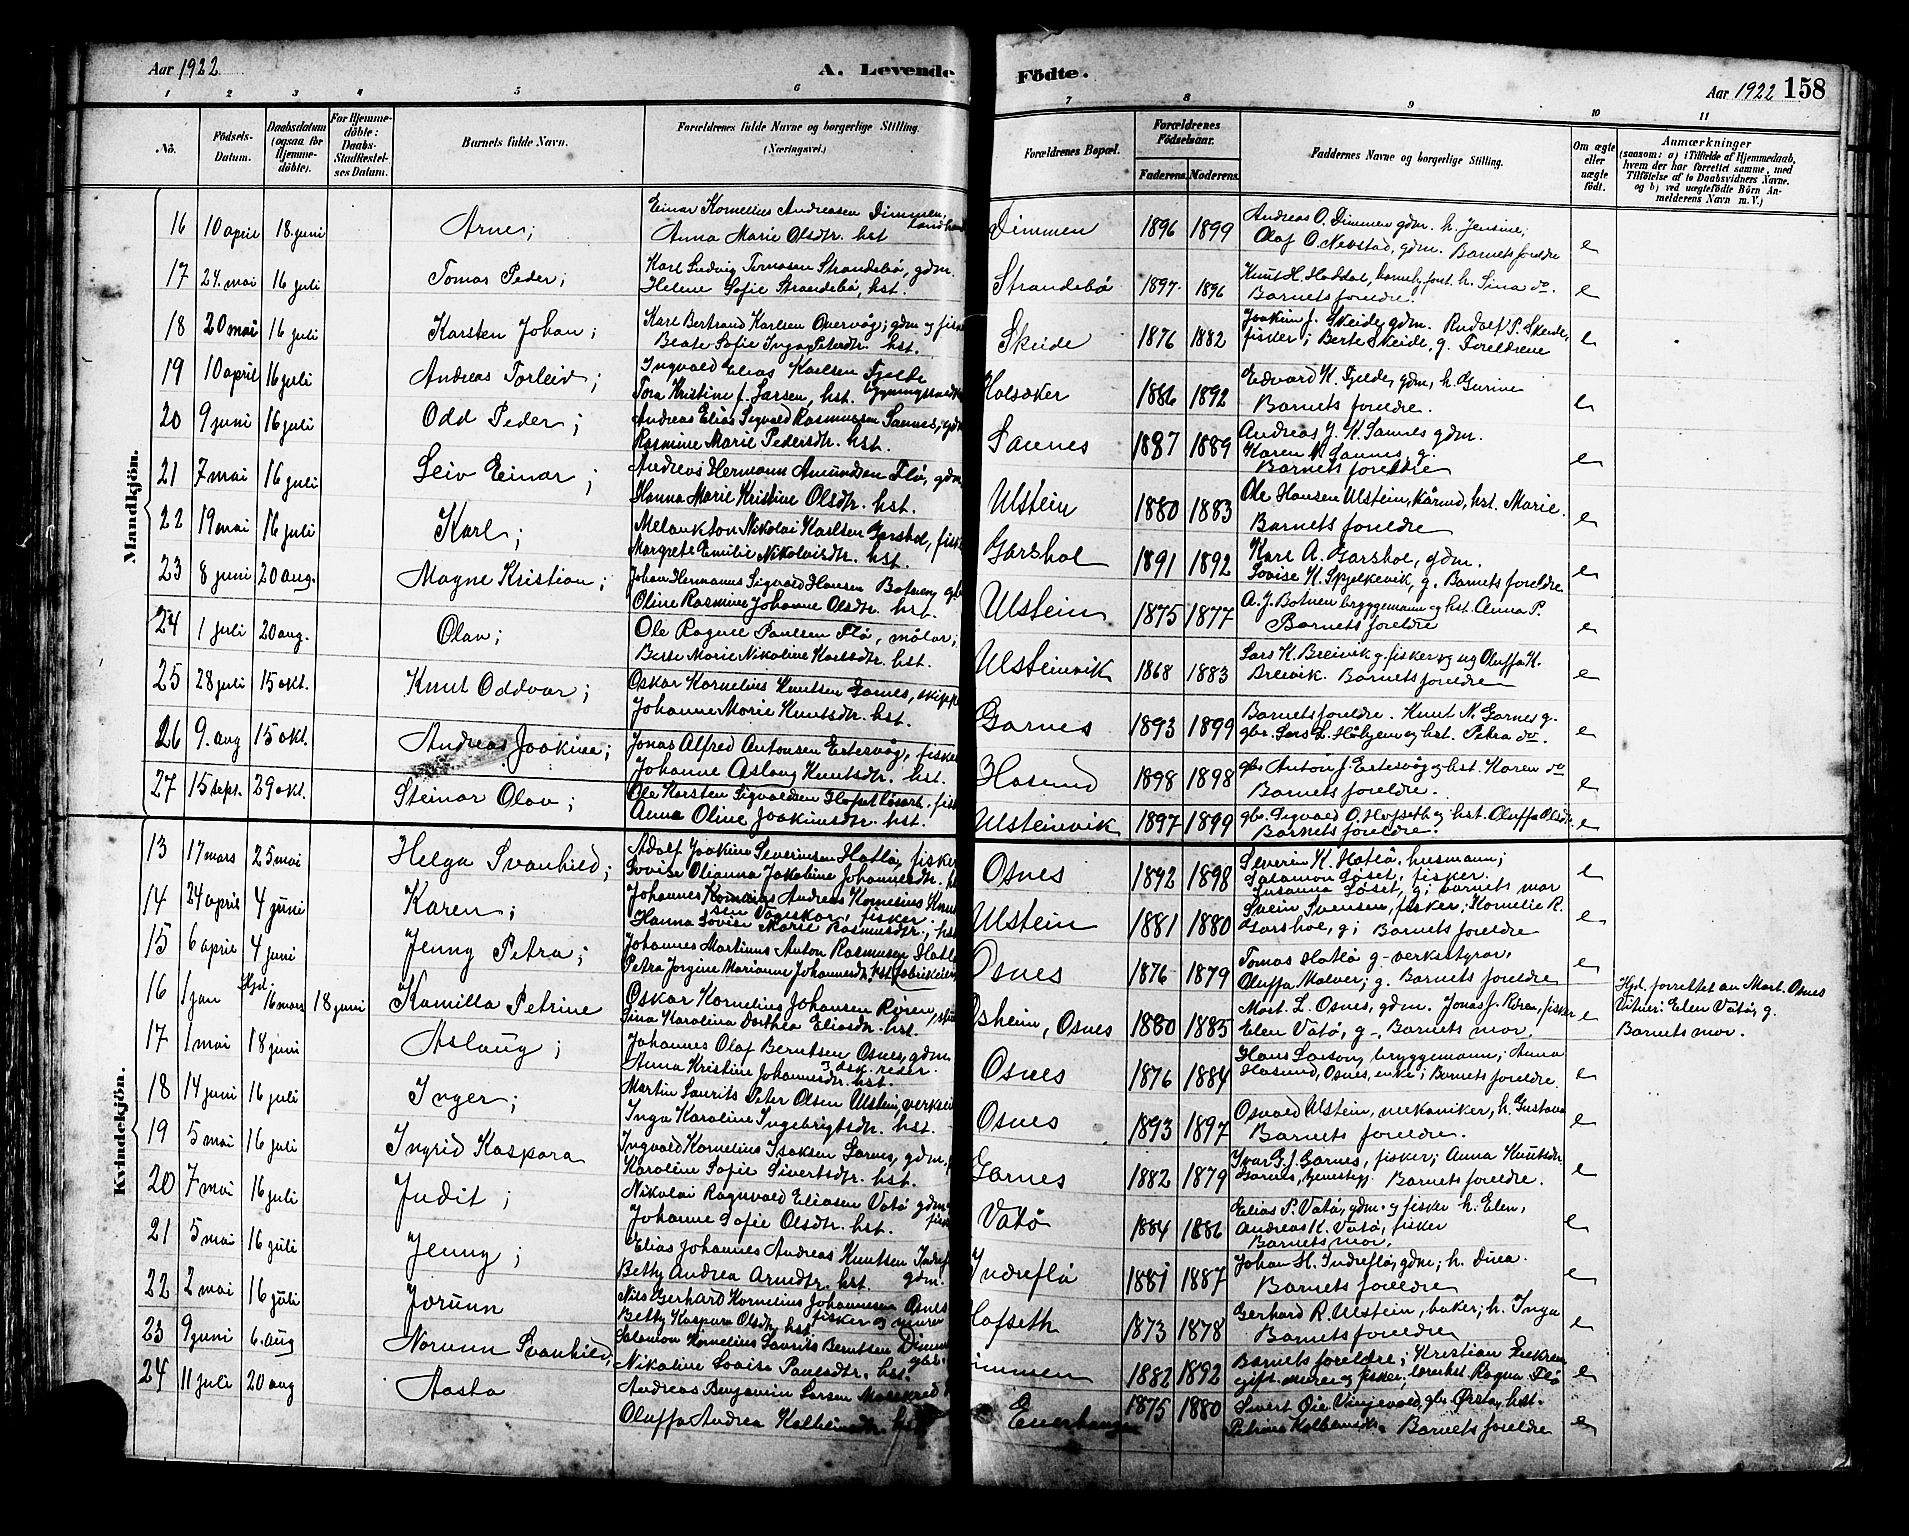 Aar 1922
A. Levende Födte.
Aar 1922 158
1 2 3 4 5 6 7 8 9 10 11
No. Födsels-Datum. Daabsdatum (ogsaa for Hjemme-döbte). For Hjemme-döbte: Daabs-Stadfæstel-ses Datum. Barnets fulde Navn. Forældrenes fulde Navne og borgerlige Stilling. (Næringsvei.) Forældrenes Bopæl. Forældrenes Födselsaar. Faderens. Moderens. Faddernes Navne og borgerlige Stilling. Om ægte eller uægte födt. Anmærkninger (saasom: a) i Tilfælde af Hjemmedaab, hvem der har forrettet samme, med Tilföielse af to Daabsvidners Navne, og b) ved uægtefödte Börn An-melderens Navn m. V.)
Mandkjön.
16 10 april 18. juni Arne; Einar Kornelius Andreasen Dimmen, Dimmen 1896 1899 Andreas O. Dimmen gdm. h. Jensine; e
Anna Marie Olsdtr. hst Olaf O. Nevstad, gdm. Barnets foreldre
17 24. mai 16 juli Tomas Peder; Karl Ludvig Tomasen Strandebö, gdm. Strandebö 1897 1896 Knut H. Haddal, h. Sina do. e
Helene Sofie Strandebö, hst. Barnets foreldre.
18 20 mai 16 juli Karsten Johan; Karl Bertrand Karlsen Overvåg; gdm og Skeide 1876 1882 Joakim J. Skeide gdm. Rudolf P. Skeide, e
Beate Sofie Inga Petersdtr. hst. fisker; Berte Skeide, g. Foreldrene
19 10 april 16 juli Andreas Torleiv; Ingvald Elias Karlsen Fjelde Holsaker 1886 1892 Edvard K. Fjelde, gdm, h. Gurine e
Tora Kristine f. Larsen, hst. Barnets foreldre.
20 9 juni 16 juli Odd Peder; Andreas Elias Sigvald Rasmussen Saunes, gdm Saunes 1887 1889 Andreas J. K. Saunes gdm. e
Rasmine Marie Pedersdtr. hst. Karen K. Saunes g. Barnets foreldre
21 7 mai 16 juli Leiv Einar; Andreas Hermann Amundsen Flö, gdm Ulstein 1880 1883 Ole Hansen Ulstein, kårmd, hst. Marie. e
Hanna Marie Kristine Olsdtr. hst. Barnets foreldre
22 19 mai 16 juli Karl; Melankton Nikolai Karlsen Garshol, Garshol 1891 1892 Karl A. Garshol, gdm. e
Margrete Emilie Nikolaisdtr. hst. Lovise K. Spjelkevik, g. Barnets foreldre
23 8 juni 20 aug. Magne Kristian; Johan Hermanus Sigvald Hansen Botnen, Ulstein 1875 1877 A. J. Botnen bryggemann og hst. Anna P. e
Oline Rasmine Johanne Olsdtr. hst. Barnets foreldre
24 1 juli 20 aug. Olav; Ole Ragnel Paulsen Flö, målar; Ulsteinvik 1868 1883 Lars K. Breivik g. fisker og ug Oluffa K. e
Berte Marie Nikoline Karlsdtr. hst. Breivik. Barnets foreldre
25 28 juli 15 okt. Knut Oddvar; Oskar Kornelius Knutsen Garnes, Garnes 1893 1899 Barnets foreldre. Knut N. Garnes g. e
Johanne Marie Knutsdtr. hst. gbr. Lars L. og hst. Petra do.
26 9. aug 15 okt. Andreas Joakim; Jonas Alfred Antonsen Ertesvåg, fisker Hasund 1898 1898 gbr Anton J. Ertesvåg og hst. Karen do e
Johanne Aslaug Knutsdtr. hst. Barnets foreldre.
27 15 sept. 29 okt. Steinar Olav; Ole Karsten Sigvaldsen Hofset Ulsteinvik 1897 1899 gbr. Sigvald O. Hofseth og hst. Oluffa Olsdtr e
Anna Oline Joakimsdtr. hst. Barnets foreldre.
Kvindekjön.
13 17 mars 25 mai Helga Svanhild; Adolf Joakim Severinsen Hatlö, fisker Osnes 1892 1898 Severin K. Hatlö, husmann; e
Lovise Olianna Jakobine Johannesdtr. Salamon Löset, fisker. Susanna Löset, g; barnets mor
14 24 april 4 juni Karen; Johannes Andreas Kornelius Knut Ulstein 1881 1880 Svein Svensen, fisker; Kornelie R. e
sen Vågeskar, fisker. Hanna Lovise Marie Rasmusdtr., hst Garshol, g; Barnets foreldre
15 6 april 4 juni Jenny Petra; Johannes Martinus Anton Rasmussen Hatlö Osnes 1876 1879 Tomas Hatlö g. verksstyrar, e
Petra Jorgine Marianne Johannesdtr. hst. Oluffa Malver; g. Barnets foreldre
16 1 jan Hjd. 16 mars 18 juni Kamilla Petrine Oskar Kornelius Johansen Rören, Osheim, Osnes 1880 1885 Mart. L. Osnes, gdm. Jonas J. Röran, fisker e Hjd. forrettet av Mart. Osnes
Sina Karolina Dorthea Eliasdtr. hst. Elen Vatö, g. Barnets mor. Vitner: Elen Vatö, g. Barnets mor.
17 1 mai 18 juni Aslaug; Johannes Olaf Berntsen Osnes, gdm Osnes 1876 1884 Hans Larsen, bryggemann; Anna e
Anna Kristine Johannesdtr. hst. Hasund, Osnes, enke; Barnets foreldre.
18 14 juni 16 juli Inger; Martin Laurits Peter Olsen Ulstein, Osnes 1893 1897 Osvald Ulstein, mekaniker, h. Gustava e
Inga Karoline Ingebrigtsdtr. hst. Barnets foreldre.
19 5 mai 16 juli Ingrid Kaspara Ingvald Kornelius Isaksen Garnes, gdm. Garnes 1882 1879 Ivar G. J. Garnes, fisker; Anna Knutsdtr e
Karoline Sofie Sivertsdtr. hst. Garnes, Barnets foreldre.
20 7 mai 16 juli Judit; Nikolai Ragnvald Eliasen Vatö gdm Vatö 1884 1886 Elias P. Vatö, gdm. og fisker h. Elen, e
Johanne Sofie Olsdtr. hst. Andreas K. Vatö, fisker Barnets mor.
21 5 mai 16 juli Jenny; Elias Johannes Andreas Knutsen Indreflö Indreflö 1881 1887 Johan H. Indreflö, gdm; h. Dina. e
Betty Andrea Arndtr. hst. gdm. Barnets foreldre
22 2 mai 16 juli Jorunn Nils Gerhard Kornelius Johannesen Osnes Hofseth 1873 1878 Gerhard R. Ulstein, baker; h. Inga e
Betty Kaspara Olsdtr. hst. fisker og murer Barnets foreldre
23 9 juni 6. aug Norunn Svanhild; Salomon Kornelius Laurits Berntsen Dimmen Dimmen 1882 1892 Barnets foreldre; Kristian e
Nikoline Lovise Paulsdtr. hst. gift. murer og fisker, Ragna Flö
24 11 juli 20 aug Aasta Andreas Benjamin Larsen 1875 1880 Sivert Öie Vinjevold, gbr. Örsta, hst. e
Oluffa Andrea Kolbeinsdtr. Petrine Kolbeinsdtr. Barnets foreldre